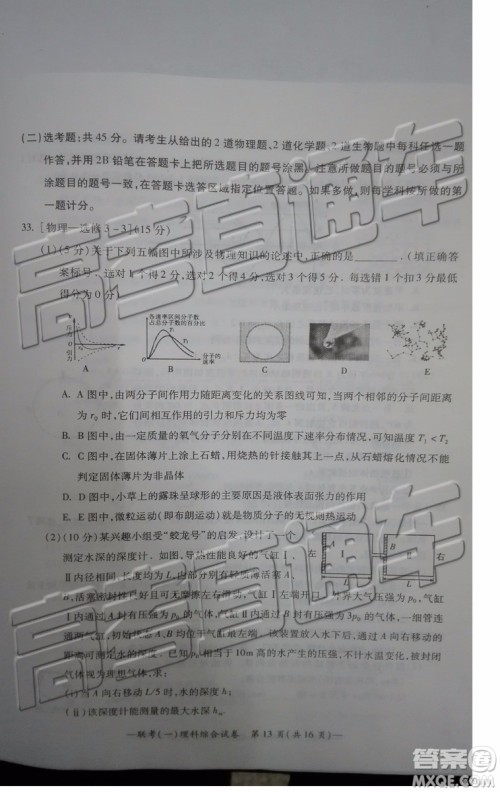 (二)选考题:共45分。请考生从给出的2道物理题、2道化学题、2道生物题中每科任选一题
作答,并用2B铅笔在答题卡上把所选题目的题号涂黑。注意所做题目的题号必须与所
涂题目的题号一致,在答题卡选答区域指定位置答题。如果多做,则每学科按所做的第
一题计分。
33. [物理—选修3-3](15分)
(1)(5分)关于下列五幅图中所涉及物理知识的论述中,正确的是________。(填正确答
案标号。选对1个得2分,选对2个得4分,选对3个得5分。每选错1个扣3分,最低
得分为0分)
各速率区间分子数
占总分子数的百分比
斥力
引力
分子的
速率
A
B
C
D
E
A. A图中,由两分子间作用力随距离变化的关系图线可知,当两个相邻的分子间距
为r0时,它们间相互作用的引力和斥力均为零
B. B图中,由一定质量的氧气分子分别在不同温度下速率分布情况,可知温度T1<T2
C. C图中,在固体薄片上涂上石蜡,用烧热的针接触其上一点,从石蜡熔化情况不能
判定固体薄片为非晶体
D. D图中,小草上的露珠呈球形的主要原因是液体表面张力的作用
E. E图中,微粒运动(即布朗运动)就是物质分子的无规则热运动
(2)(10分)某兴趣小组受“蛟龙号”的启发,设计了一个
测定水深的深度计。如图,导热性能良好的气缸Ⅰ、
A
Ⅰ
B
Ⅱ
B,活塞密封性良好且可无摩擦左右滑动,气缸Ⅰ左端开口。
Ⅰ内通过A封有压强为p0的气体,气缸Ⅱ内通过B封有压强为3p0的气体,一细管连
通两气缸,初始状态A、B均位于气缸最左端。该装置放入水下后,通过A向右移动的
距离可测定水的深度。已知p0相当于10m高的水产生的压强,不计水温变化,被封闭
气体视为理想气体,求:
(ⅰ)当A向右移动L/5时,水的深度h;
(ⅱ)该深度计能测量的最大水深hm。
—联考(一)理科综合试卷 第13页(共16页)—
高考直通车
高考直通车
高考直通车
答案圈
MXQE.COM